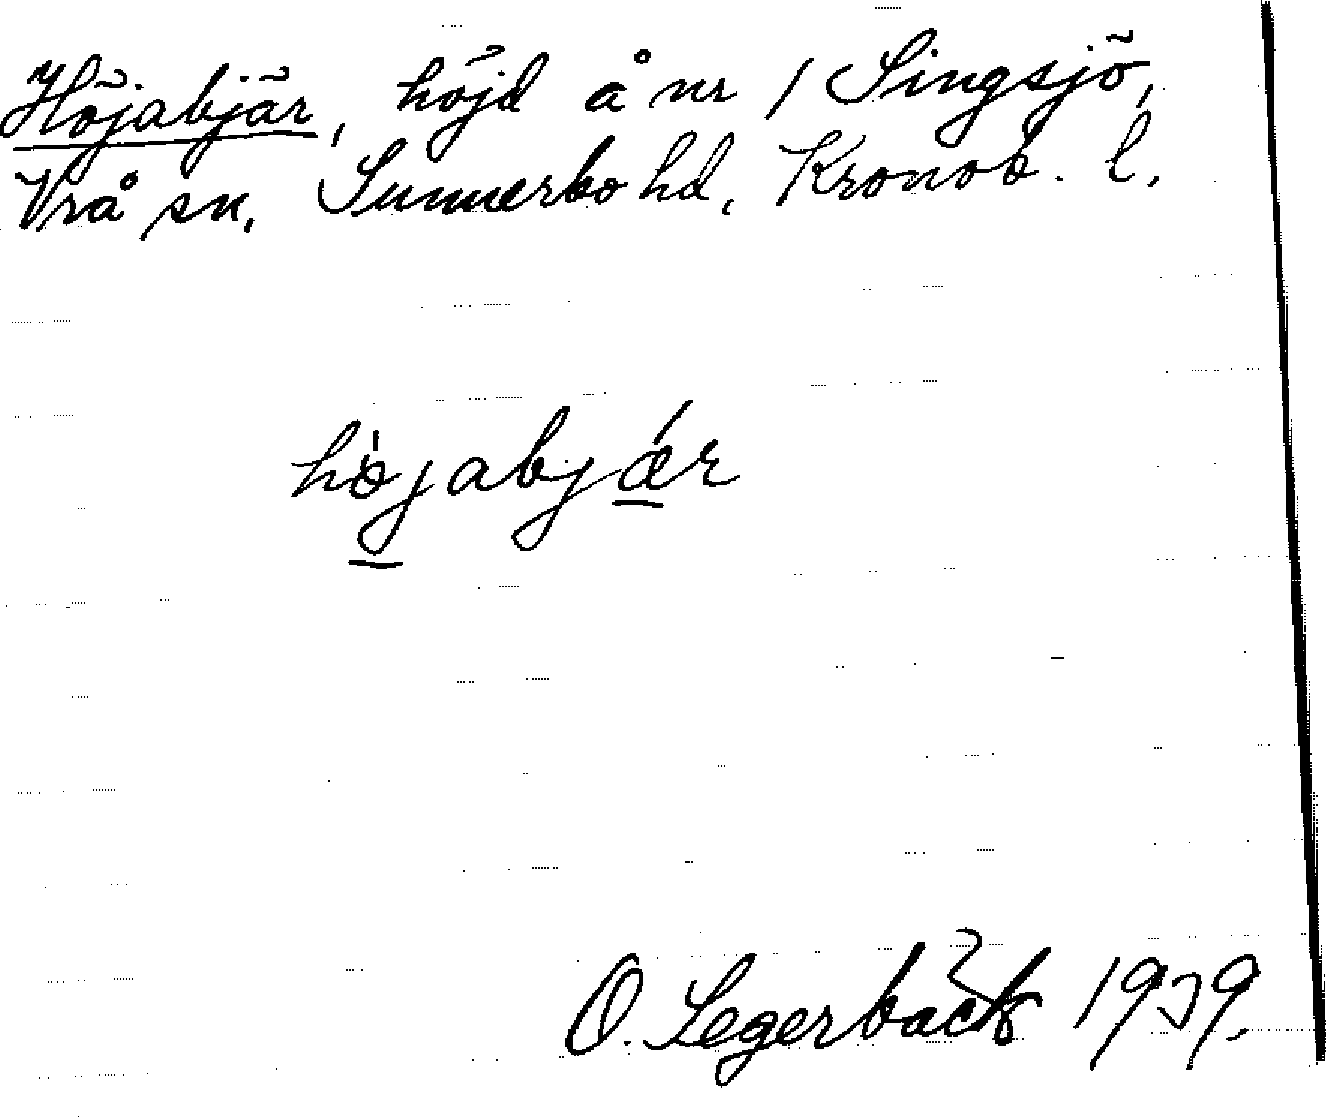 Höjabjär, höjd å nr 1 Singsjö,
Vrå sn, Sunnerbo hd, Kronob. l.
hö̀jabjǽr
O. Segerbäck 1939.